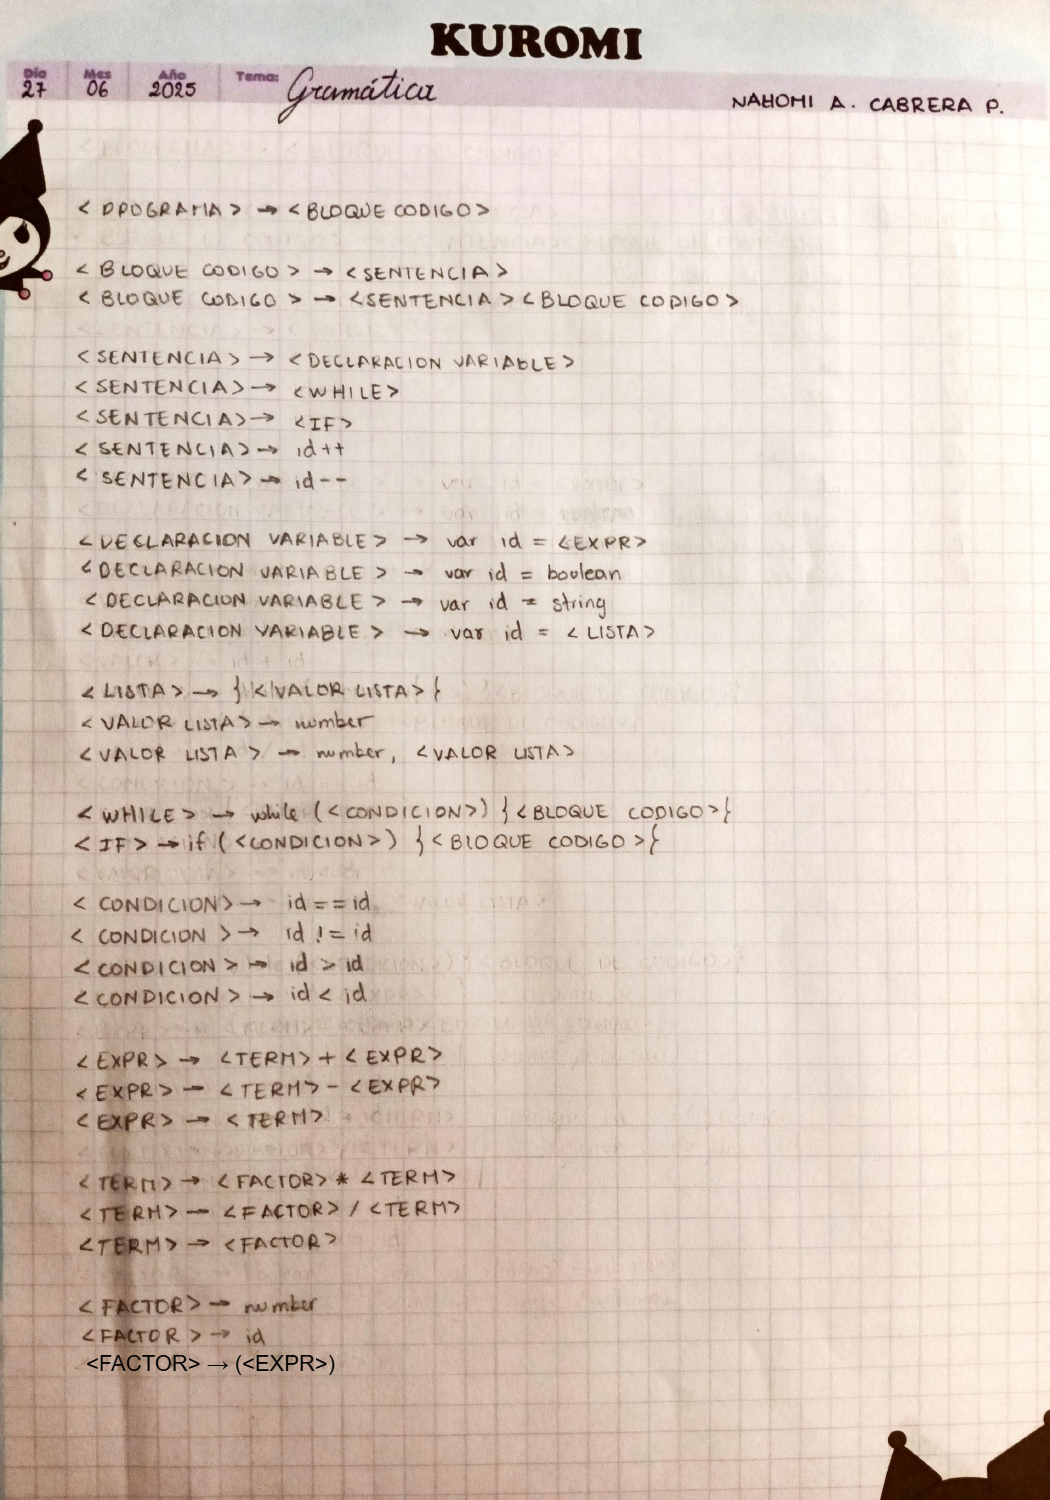 KUROMI
Día Mes Año Tema: Gramática
27 06 2025
NAHOMI A. CABRERA P.
<PROGRAMA> → <BLOQUE CODIGO>
<BLOQUE CODIGO> → <SENTENCIA>
<BLOQUE CODIGO> → <SENTENCIA><BLOQUE CODIGO>
<SENTENCIA> → <DECLARACION VARIABLE>
<SENTENCIA> → <WHILE>
<SENTENCIA> → <IF>
<SENTENCIA> → id++
<SENTENCIA> → id--
<DECLARACION VARIABLE> → var id = <EXPR>
<DECLARACION VARIABLE> → var id = boolean
<DECLARACION VARIABLE> → var id = string
<DECLARACION VARIABLE> → var id = <LISTA>
<LISTA> → {<VALOR LISTA>}
<VALOR LISTA> → number
<VALOR LISTA> → number, <VALOR LISTA>
<WHILE> → while (<CONDICION>) {<BLOQUE CODIGO>}
<IF> → if (<CONDICION>) {<BLOQUE CODIGO>}
<CONDICION> → id == id
<CONDICION> → id != id
<CONDICION> → id > id
<CONDICION> → id < id
<EXPR> → <TERM> + <EXPR>
<EXPR> → <TERM> - <EXPR>
<EXPR> → <TERM>
<TERM> → <FACTOR> * <TERM>
<TERM> → <FACTOR> / <TERM>
<TERM> → <FACTOR>
<FACTOR> → number
<FACTOR> → id
<FACTOR> → (<EXPR>)